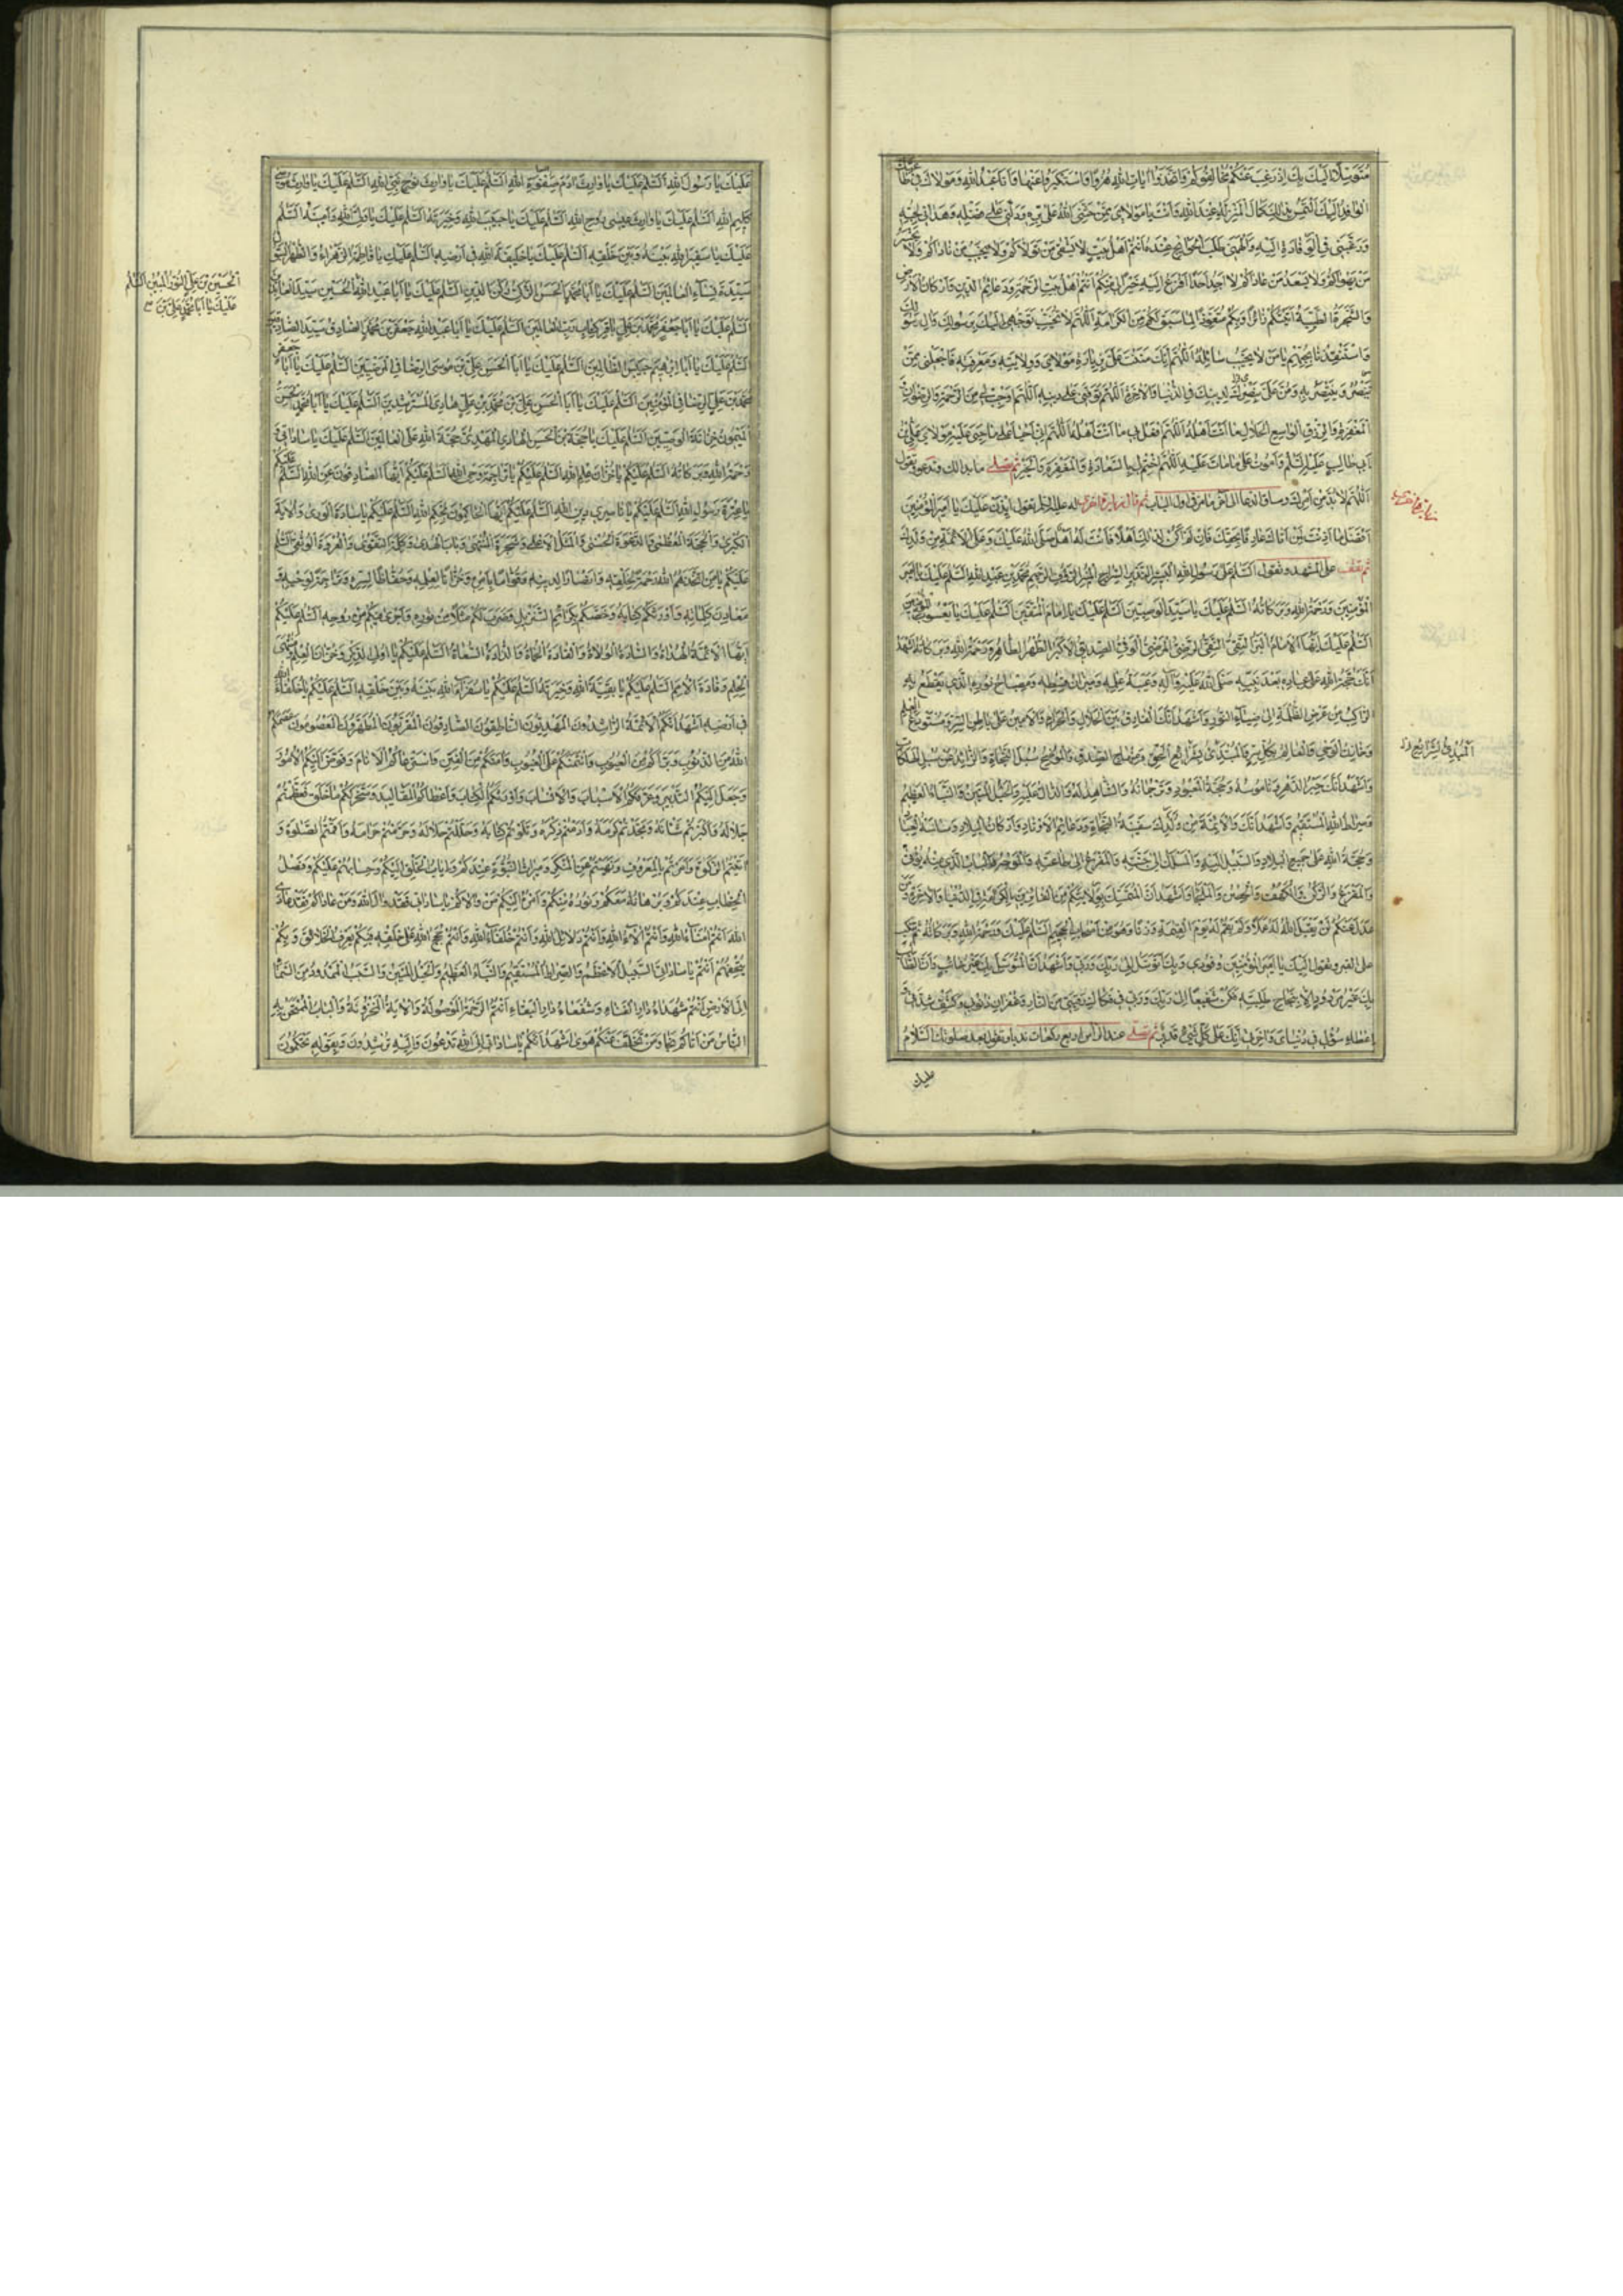 متوسلا اليك بك اذ رغب عنكم مخالفوكم واتخذوا ايات الله هزوا واستكبروا عنها وانا عبد الله ومولاك في طاعتك
الوافد اليك التمس بذلك كمال المنزلة عند الله وانت يا مولاى ممن حثنى الله على بره ودلنى على فضله وهدانى لحبه
ورغبنى فى الوفادة اليه والهمنى طلب الحوائج عنده انتم اهل بيت لا يشقى من تولاكم ولا يخيب من ناداكم ولا يخسر
من يهواكم ولا يسعد من عاداكم لا اجد احدا افزع اليه خيرا لى منكم انتم اهل بيت الرحمة ودعائم الدين واركان الارض
والشجرة الطيبة اتيتكم زائرا وبكم متعوذا لما سبق لكم من الكرامة اللهم لا تخيب توجهى اليك برسولك وال رسولك
واستنقذنا بحبهم يا من لا يخيب سائله اللهم انك مننت على بزيارة مولاى وولايته ومعرفته فاجعلنى ممن
ينصره وينتصر به ومن على بنصرك لدينك فى الدنيا والاخرة اللهم توفنى على دينه اللهم اوجب لى من الرحمة والرضوان
المغفرة والرزق الواسع الحلال ما انت اهله اللهم افعل بى ما انت اهله اللهم انى احيا على ما حيى عليه مولاى على بن
ابى طالب عليه السلم واموت على ما مات عليه اللهم اختم لى بالسعادة والمغفرة والخير ثم تصلى ما بدا لك وتدعو وتقول
اللهم لا بد من امرك وساق الدعا الى اخر ما مر فى اول الباب ثم قال زيارة اخرى له عليه السلم تقول ايذن عليك يا امير المؤمنين
افضل ما اذنت لمن اتاك عارفا بحقك فان لم اكن لذلك اهلا فانت له اهل صلى الله عليك وعلى الائمة من ولدك
ثم تقف على المشهد وتقول السلم على رسول الله البشير النذير السراج المنير الرؤف الرحيم محمد بن عبد الله السلم عليك يا امير
المؤمنين ورحمة الله وبركاته السلم عليك يا سيد الوصيين السلم عليك يا امام المتقين السلم عليك يا يعسوب المؤمنين
السلم عليك ايها الامام البر التقى النقى الرضى المرضى الوفى الصديق الاكبر الطهر الطاهر ورحمة الله وبركاته اشهد
انك حجة الله على عباده بعد نبيه صلى الله عليه واله وعيبة علمه وميزان قسطه ومصباح نوره الذى يقطع به
الراكب من عرض الظلمة الى ضياء النور واشهد انك الفارق بين الحلال والحرام والامين على باطن السر ومستودع العلم
وخازن الوحى والعالم بكل سر والمبتدئ بشرايع الحق ومنهاج الصدق والموضح سبل النجاة والزائد عن سبل الهلكات
واشهد انك خير الدهر وناموسه وحجة المعبود وترجمانه والشاهد له والدال عليه والحبل المتين والنباء العظيم
وصراط الله المستقيم واشهد انك والائمة من ولدك سفينة النجاة ودعائم الاوتاد واركان البلاد وساسة العباد
وحجة الله على جميع البلاد والسبيل اليه والمسلك الى جنته والمفزع الى طاعته والوجه والباب الذى منه يؤتى
والمفزع والركن والكهف والحصن والملجاء واشهد ان المتمسك بولايتكم من الفائزين بالكرامة فى الدنيا والاخرة ومن
عدل عنكم لن يقبل الله له عملا ولم يقم له يوم القيمة وزنا وهو من اصحاب الجحيم السلم عليك ورحمة الله وبركاته ثم تنكب
على القبر وتقول اليك يا امير المؤمنين وفودى وبك اتوسل الى ربك وربى واشهد ان المتوسل بك غير خائب وان الطالب
بك غير مردود الا بنجاح طلبته فكن شفيعا الى ربك وربى فى فكاك رقبتى من النار وغفران ذنوبى وكشف شدتى و
اعطاء سؤلى فى دنياى واخرتى انك على كل شئ قدير ثم تصلى عند الراس اربع ركعات ندبا وتقول بعد صلوتك السلام
عليك
زيارة اخرى
المبدئ لشرايع
عليك يا رسول الله السلم عليك يا وارث ادم صفوة الله السلم عليك يا وارث نوح نبى الله السلم عليك يا وارث موسى
كليم الله السلم عليك يا وارث عيسى روح الله السلم عليك يا حبيب الله وخيرته السلم عليك يا ولى الله وامينه السلم
عليك يا سفير الله بينه وبين خلقه السلم عليك يا خليفة الله فى ارضه السلم عليك يا فاطمة الزهراء والطهر البتول
سيدة نساء العالمين السلم عليك يا ابا محمد الحسن الزكى ركن الدين السلم عليك يا ابا عبد الله الحسين سيد العابدين
السلم عليك يا ابا جعفر محمد بن على باقر كتاب رب العالمين السلم عليك يا ابا عبد الله جعفر بن محمد الصادق سيد الصادقين
السلم عليك يا ابا ابرهيم حبيس الظالمين السلم عليك يا ابا الحسن على بن موسى الرضا فى المرضيين السلم عليك يا ابا جعفر
محمد بن على الرضا فى المؤمنين السلم عليك يا ابا الحسن على بن محمد بن على هادى المسترشدين السلم عليك يا ابا محمد الحسن
الميمون خزانة الوصيين السلم عليك يا حجة بن الحسن الهادى المهدى حجة الله على العالمين السلم عليك يا ساداتى و
رحمة الله وبركاته السلم عليكم يا خزان علم الله السلم عليكم يا تراجمة وحى الله السلم عليكم ايها الصادقون عن الله السلم عليكم
يا عترة رسول الله السلم عليكم يا ناصرى دين الله السلم عليكم ايها الحاكمون بحكم الله السلم عليكم يا سادة الورى والاية
الكبرى والحجة العظمى والدعوة الحسنى والمثل الاعلى وشجرة المنتهى وباب الهدى وكلمة التقوى والعروة الوثقى السلم
عليكم يا من اتخذهم الله رحمة لخلقه وانصارا لدينه وقواما بامره وخزانا لعلمه وحفاظا لسره وتراجمة لوحيه و
معادن كلماته واورثكم كتابه وخصكم بكرائم التنزيل وضرب لكم مثلا من نوره واجرى فيكم من روحه السلم عليكم
ايها الائمة الهداة والسادة الولاة والقادة الحماة والذادة السعاة السلم عليكم يا اولى الذكر وخزان العلم ومنتهى
الحلم وقادة الامم السلم عليكم يا بقية الله وخيرته السلم عليكم يا سفراء الله بينه وبين خلقه السلم عليكم يا خلفاء الله
فى ارضه اشهد انكم الائمة الراشدون المهديون الناطقون الصادقون المقربون المطهرون المعصومون عصمكم
الله من الذنوب وبراكم من العيوب وائتمنكم على الغيوب وامنكم من الفتن واسترعاكم الانام وفوض اليكم الامور
وجعل اليكم التدبير وعرفكم الاسباب والانساب واورثكم الكتاب واعطاكم المقاليد وسخر لكم ما خلق فعظمتم
جلاله واكبرتم شانه ومجدتم كرمه وادمنتم ذكره وتلوتم كتابه وحللتم حلاله وحرمتم حرامه واقمتم الصلوة و
اتيتم الزكوة وامرتم بالمعروف ونهيتم عن المنكر وميراث النبوة عندكم واياب الخلق اليكم وحسابهم عليكم وفصل
الخطاب عندكم وبرهانه معكم ونوره منكم وامره اليكم من والاكم يا ساداتى فقد والى الله ومن عاداكم فقد عادى
الله انتم امناء الله وانتم الاء الله وانتم دلائل الله وانتم خلفاء الله وانتم حجج الله على خلقه فبكم يعرف الخلائق وبكم
يتحفهم انتم يا ساداتى السبيل الاعظم والصراط المستقيم والنباء العظيم والحبل المتين والسبب الممدود من السماء
الى الارض انتم شهداء دار الفناء وشفعاء دار البقاء انتم الرحمة الموصولة والاية المخزونة والباب الممتحن به
الناس من اتاكم نجا ومن تخلف عنكم هوى اشهد انكم يا ساداتى الى الله تدعون واليه ترشدون وبقوله تحكمون
الحسين بن على النور المبين السلم
عليك يا ابا محمد على بن